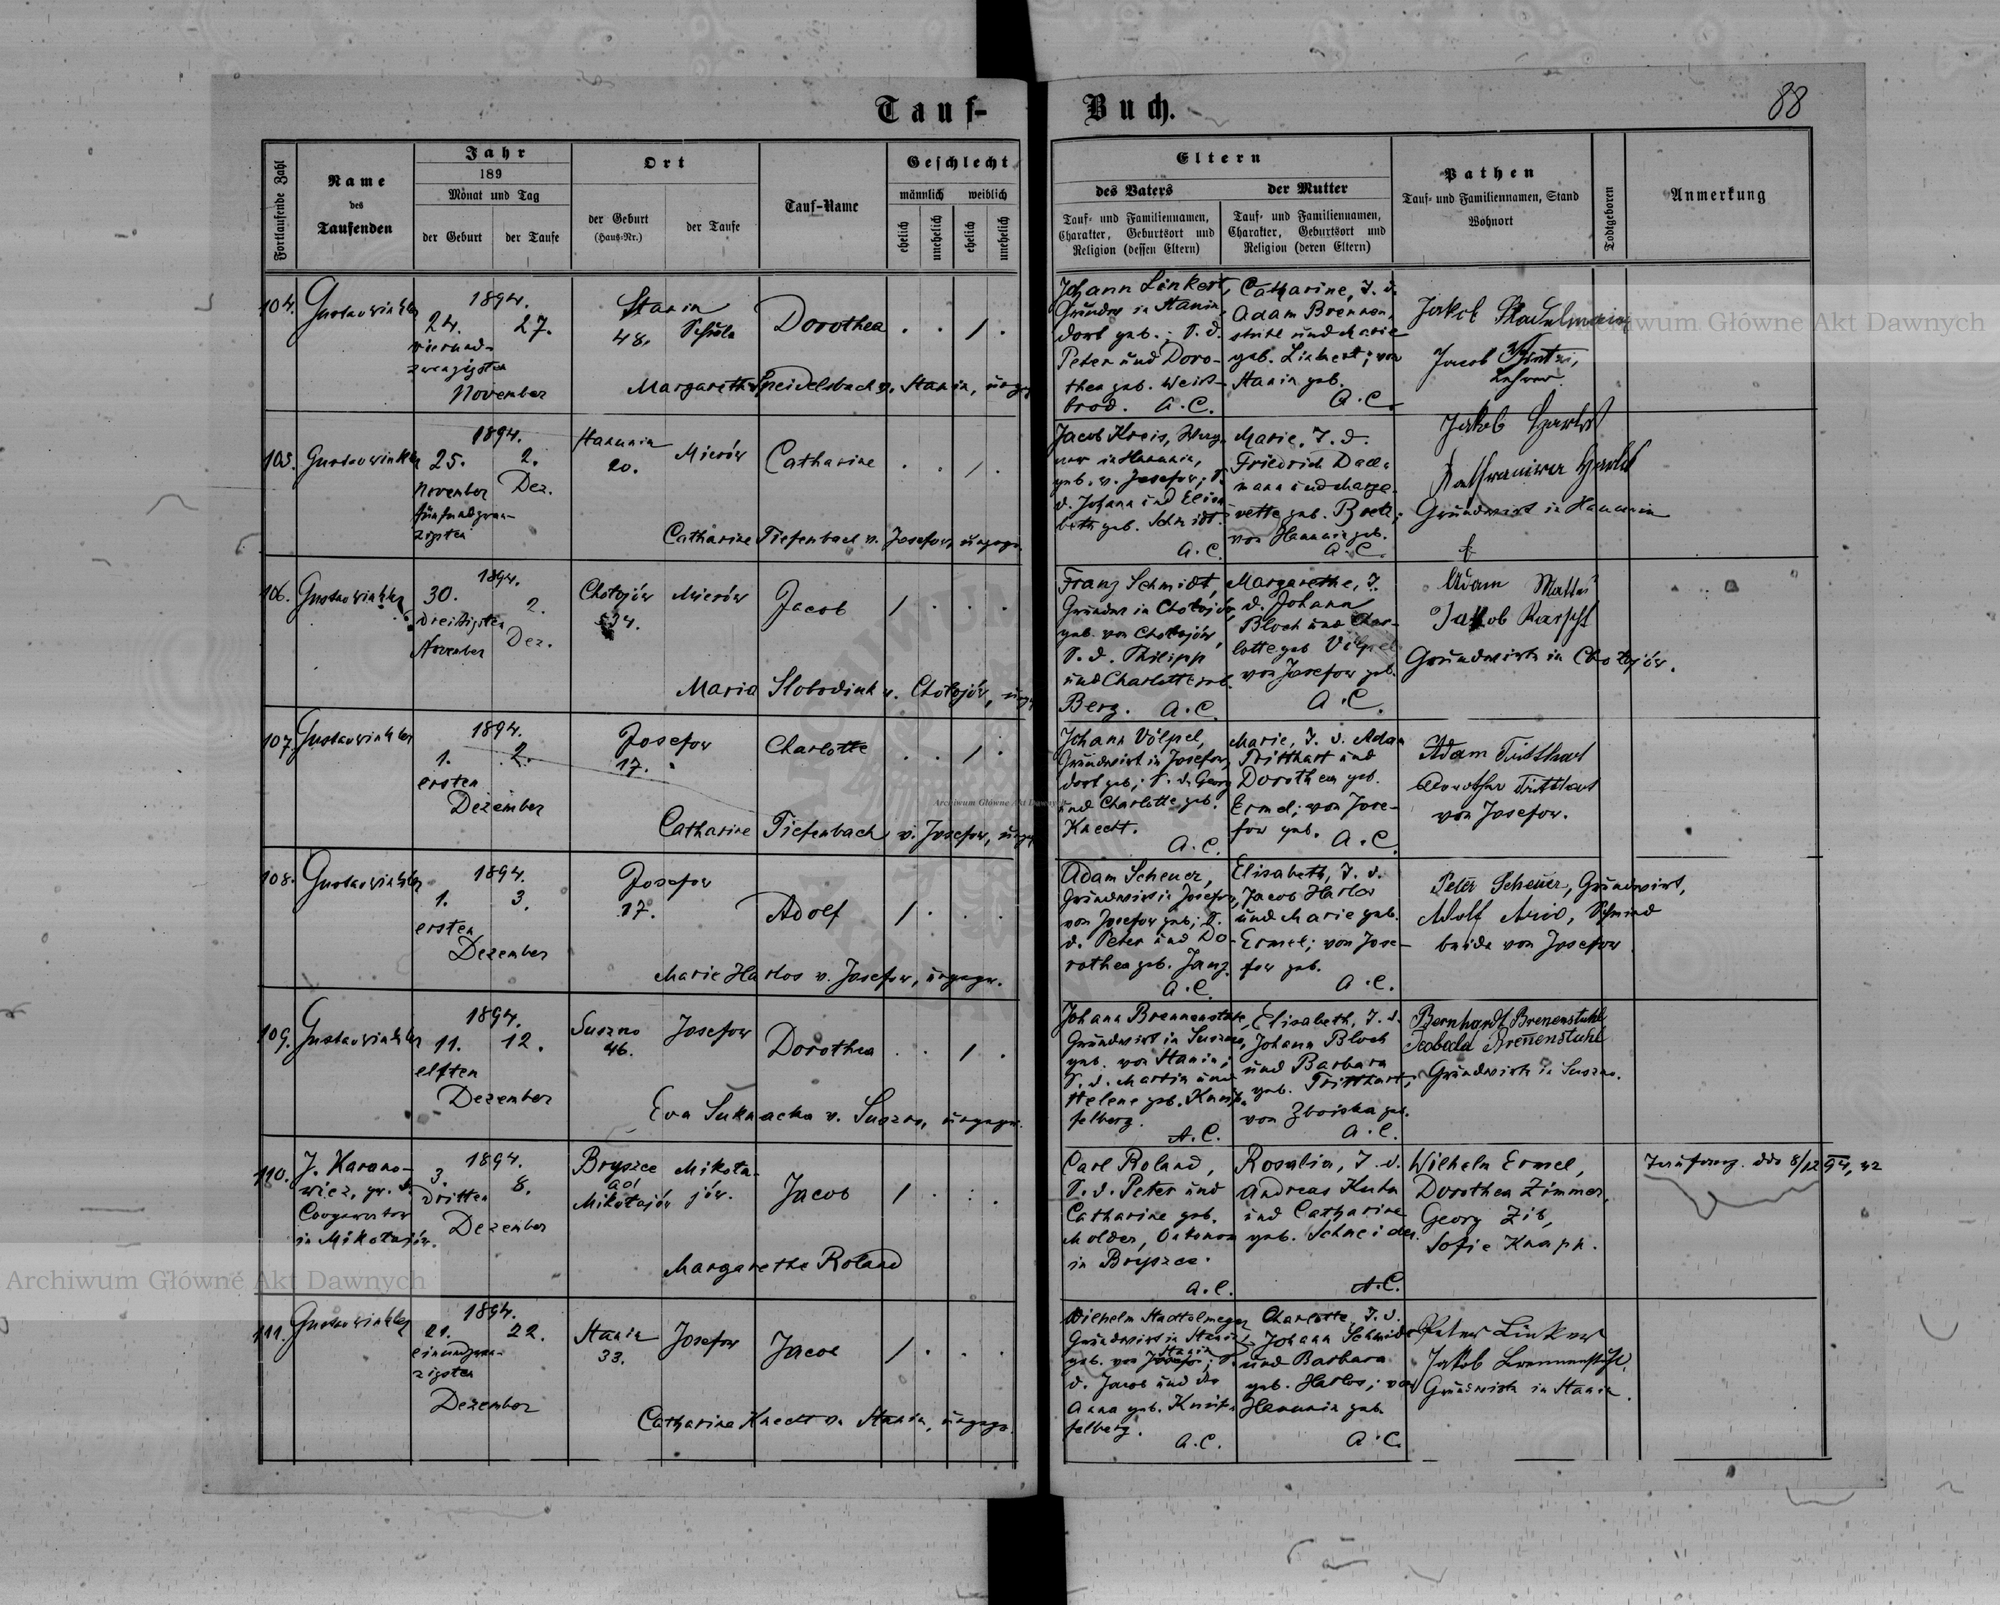 Tauf-
Buch.
88
Fortlaufende Zahl
Name
des
Taufenden
Jahr
189
Monat und Tag
der Geburt
der Taufe
Ort
der Geburt
(Haus-Nr.)
der Taufe
Tauf-Name
Geschlecht
männlich
weiblich
ehelich
unehelich
ehelich
unehelich
Eltern
des Vaters
Tauf- und Familiennamen,
Charakter, Geburtsort und
Religion (dessen Eltern)
der Mutter
Tauf- und Familiennamen,
Charakter, Geburtsort und
Religion (deren Eltern)
Pathen
Tauf- und Familiennamen, Stand
Wohnort
Todtgeboren
Anmerkung
104.
1894.
24.
27.
vierund-
zwanzigsten
November
Stanin
48.
Schule
Dorothea
Margarethe Speidelsbach v. Stanin,
Johann Linkert,
in Stanin,
dort geb.; S. d.
Peter und Doro-
thea geb. Weiß-
brod. A. C.
Catharine, T. d.
Adam Brennen-
stuhl und Marie
geb. Linkert; von
Stanin geb.
A. C.
Jakob
Jacob
Lehrer
105.
1894.
25.
2.
November
Dez.
fünfundzwan-
zigsten
Hanunin
20.
Mierów
Catharine
Catharine Tiefenbach v. Josefow,
Jacob Kreis, Wag-
ner in Hanunin,
geb. v. Josefow; S.
d. Johann und Elisa-
beth geb. Schmidt.
A. C.
Marie, T. d.
Friedrich
mann und Marga-
rette geb.
von Hanunin geb.
A. C.
Jakob
Grundwirt in Hanunin
106.
1894.
30.
2.
dreißigsten
Dez.
November
Chołojów
534.
Mierów
Jacob
Maria Slobodiuk v. Chołojów,
Franz Schmidt,
in Chołojów,
geb. von Chołojów,
S. d. Philipp
und Charlotte geb.
Berg. A. C.
Margarethe, T.
d. Johann
Bloch und Char-
lotte geb Völpel
von Josefow geb.
A. C.
Adam Mattis
Jakob
Grundwirth in Chołojów.
107.
1894.
1.
2.
ersten
Dezember
Josefow
17.
Charlotte
Catharine Tiefenbach v. Josefow,
Johann Völpel,
Grundwirt in Josefow,
dort geb; S. d. Georg
und Charlotte geb.
Knecht.
A. C.
Marie, T. d. Adam
Tritthart und
Dorothea geb.
Ermel; von Jose-
fow geb. A. C.
Adam Tritthart
Dorothea Tritthart
von Josefow.
108.
1894.
1.
3.
ersten
Dezember
Josefow
17.
Adolf
Marie Harlos v. Josefow, ungepr.
Adam Scheuer,
Grundwirt in Josefow,
von Josefow geb; S.
d. Peter und Do-
rothea geb. Janz.
A. C.
Elisabeth, T. d.
Jacob Harlos
und Marie geb.
Ermel; von Jose-
fow geb.
A. C.
Peter Scheuer, Grundwirt,
Adolf
beide von Josefow
109.
1894.
11.
12.
elften
Dezember
Suszno
46.
Josefow
Dorothea
v. Suszno, ungepr.
Johann Brennenstuhl,
Grundwirt in Suszno,
geb. von Stanin;
S. d. Martin und
Helene geb.
A. C.
Elisabeth, T. d.
Johann Bloch
und Barbara
geb. Tritthart;
von Zboiska geb.
A. C.
Bernhardt Brenenstuhl
Brenenstuhl
Grundwirth in Suszno.
110.
in Mikołajów.
1894.
3.
8.
dritten
Dezember
Bryszce
ad
Mikołajów
Mikoła-
jów.
Jacob
Margarethe Roland
Carl Roland,
S. d. Peter und
Catharine geb.
Molder, Ökonom
in Bryszce.
A. C.
Rosalia, T. d.
Andreas Kuhn
und Catharine
geb. Schneider.
A. C.
Wilhelm Ermel,
Dorothea Zimmer,
Georg Zib,
Sofie Knapp.
111.
1894.
21.
22.
einundzwan-
zigsten
Dezember
Stanin
33.
Josefow
Jacob
Catharine Knecht v. Stanin, ungepr.
Wilhelm
Grundwirt in Stanin,
Stanin
geb. von Josefow; S.
d. Jacob und
Anna geb.
A. C.
Charlotte, T. d.
Johann Schmidt
und Barbara
geb. Harlos; von
Hanunin geb.
A. C.
Peter Linker
Jakob Brennenstuhl,
Grundwirth in Stanin.
Archiwum Główne Akt Dawnych
Archiwum Główne Akt Dawnych
Archiwum Główne Akt Dawnych